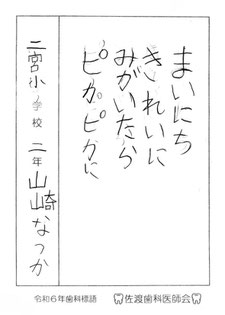 まいにち
きれいに
みがいたら
ピカピカに
二宮小学校 二年 山崎なつか
令和6年歯科標語 佐渡歯科医師会